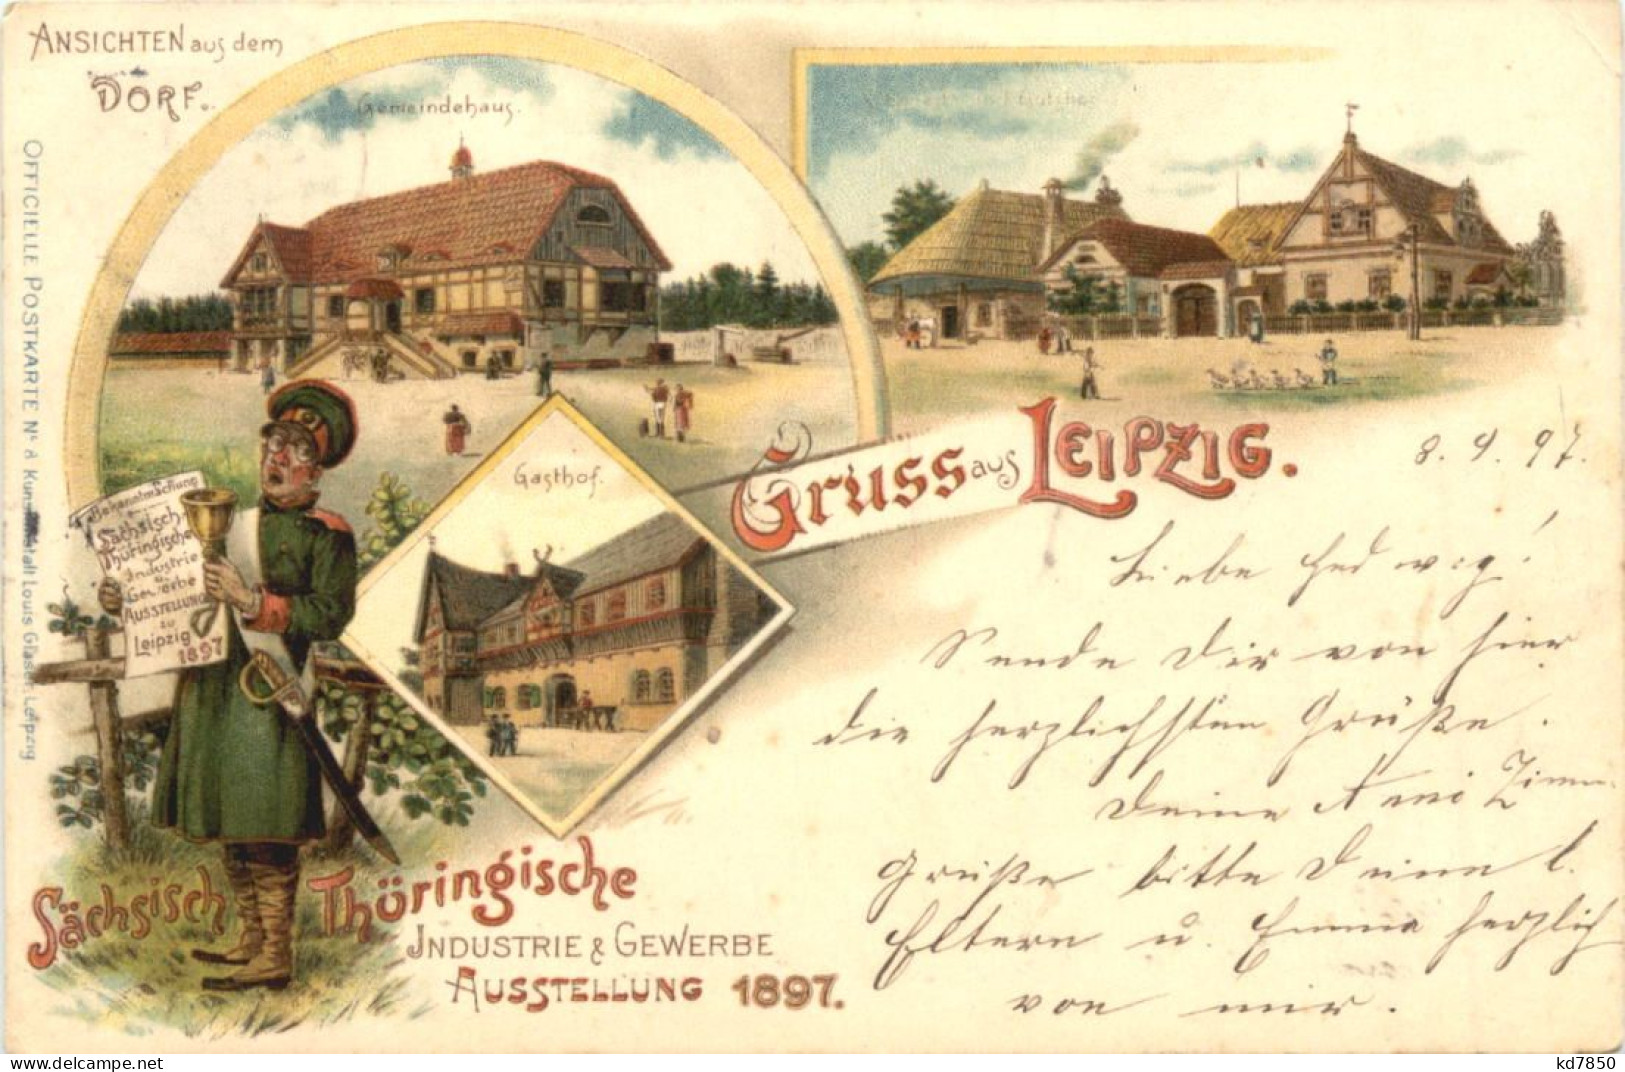 ANSICHTEN aus dem
DORF.
Gemeindehaus.
OFFICIELLE POSTKARTE No 8 Kunstanstalt Louis Glaser, Leipzig
Gasthof.
GRUSS aus LEIPZIG.
Bekanntmachung
Sächsisch
Thüringische
Industrie
u.
Gewerbe
AUSSTELLUNG
zu
Leipzig
1897
8. 9. 97.
Liebe Hedwig!
Sende Dir von hier
die herzlichsten Grüße.
Deine Anni Zimm
Grüße bitte Deine l.
Eltern u. Emma herzlich
von mir.
Sächsisch Thüringische
INDUSTRIE & GEWERBE
AUSSTELLUNG 1897.
www.delcampe.net
kd7850